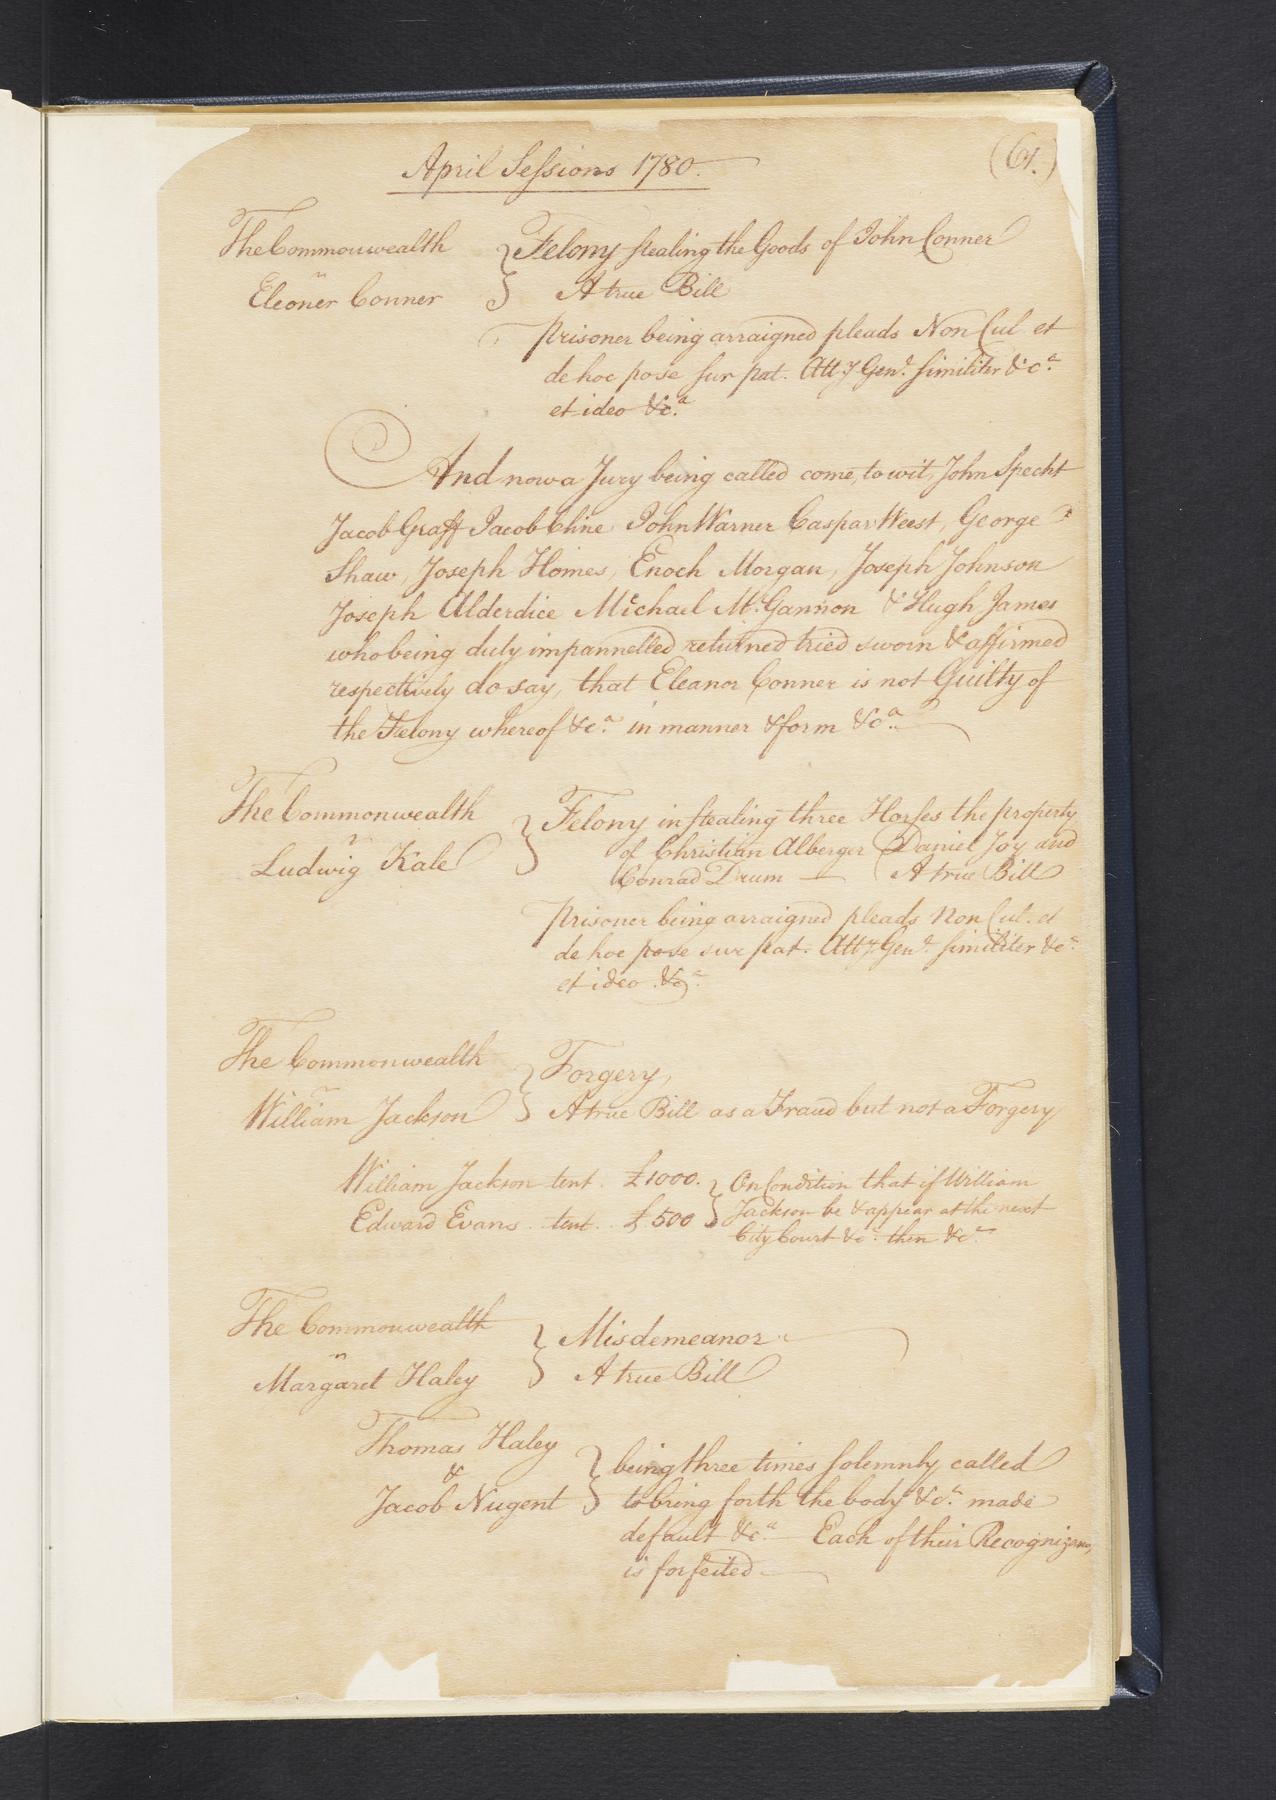 April Sessions 1780.
(61.)
The Commonwealth
v
Eleoner Conner
Felony stealing the Goods of John Conner
A true Bill
Prisoner being arraigned pleads Non Cul et
de hoc pose sur pat. Atty Genl. similiter &ca
et ideo &ca
And now a Jury being called come, to wit, John Specht
Jacob Graff Jacob Cline John Warner Caspar Weest, George
Shaw, Joseph Homes, Enoch Morgan, Joseph Johnson
Joseph Alderdice Michael McGannon & Hugh James
who being duly impannelled returned tried sworn & affirmed
respectively do say, that Eleanor Conner is not Guilty of
the Felony whereof &ca in manner & form &ca
The Commonwealth
v
Ludwig Kale
Felony in stealing three Horses the property
of Christian Alberger Daniel Joy and
Conrad Drum — A true Bill
Prisoner being arraigned pleads Non Cul. et
de hoc pose sur pat. Atty. Genl. similiter &ca
et ideo &ca
The Commonwealth
v
William Jackson
Forgery,
A true Bill as a Fraud but not a Forgery
William Jackson tent. £1000.
Edward Evans tent. £500
On Condition that if William
Jackson be & appear at the next
City Court &ca then &ca
The Commonwealth
v
Margaret Haley
Misdemeanor
A true Bill
Thomas Haley
&
Jacob Nugent
being three times solemnly called
to bring forth the body &ca made
default &ca Each of their Recognizans
is forfeited